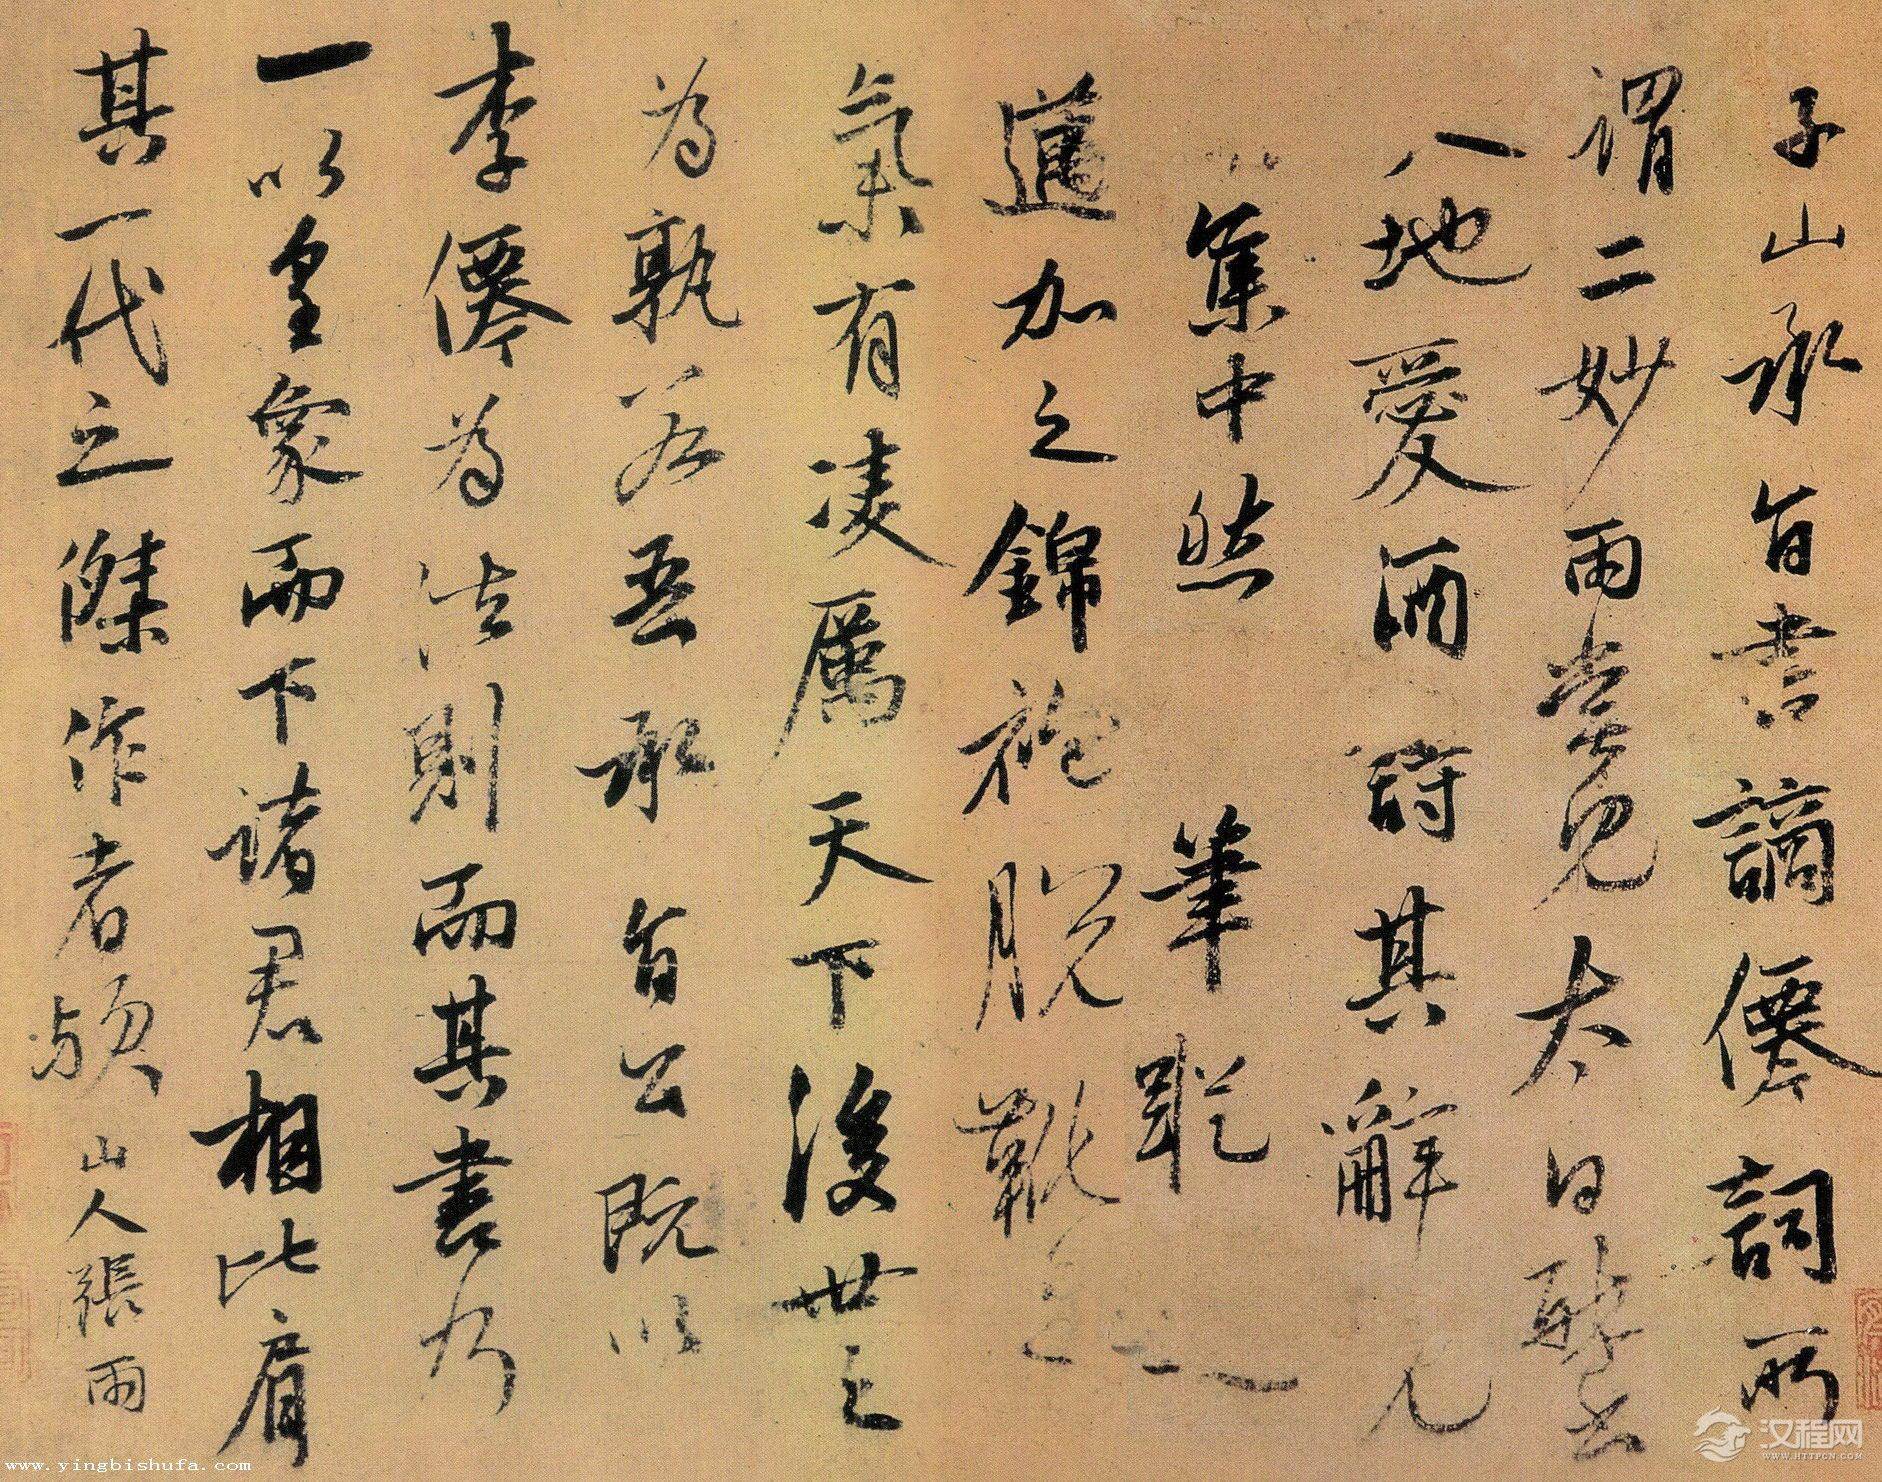 子山承旨書謫僊詞所
謂二妙雨嘗見太白醉書
八地愛酒詩其辭見
集中然筆蹤
遒加之錦袍脫靴之
氣有凌厲天下後世之
為孰若吾承旨公既以
李僊為法則而其書乃
一以皇象而下諸君相比肩
其一代之傑作者歟 山人張雨
www.yingbishufa.com
汉程网
WWW.HTTPCN.COM